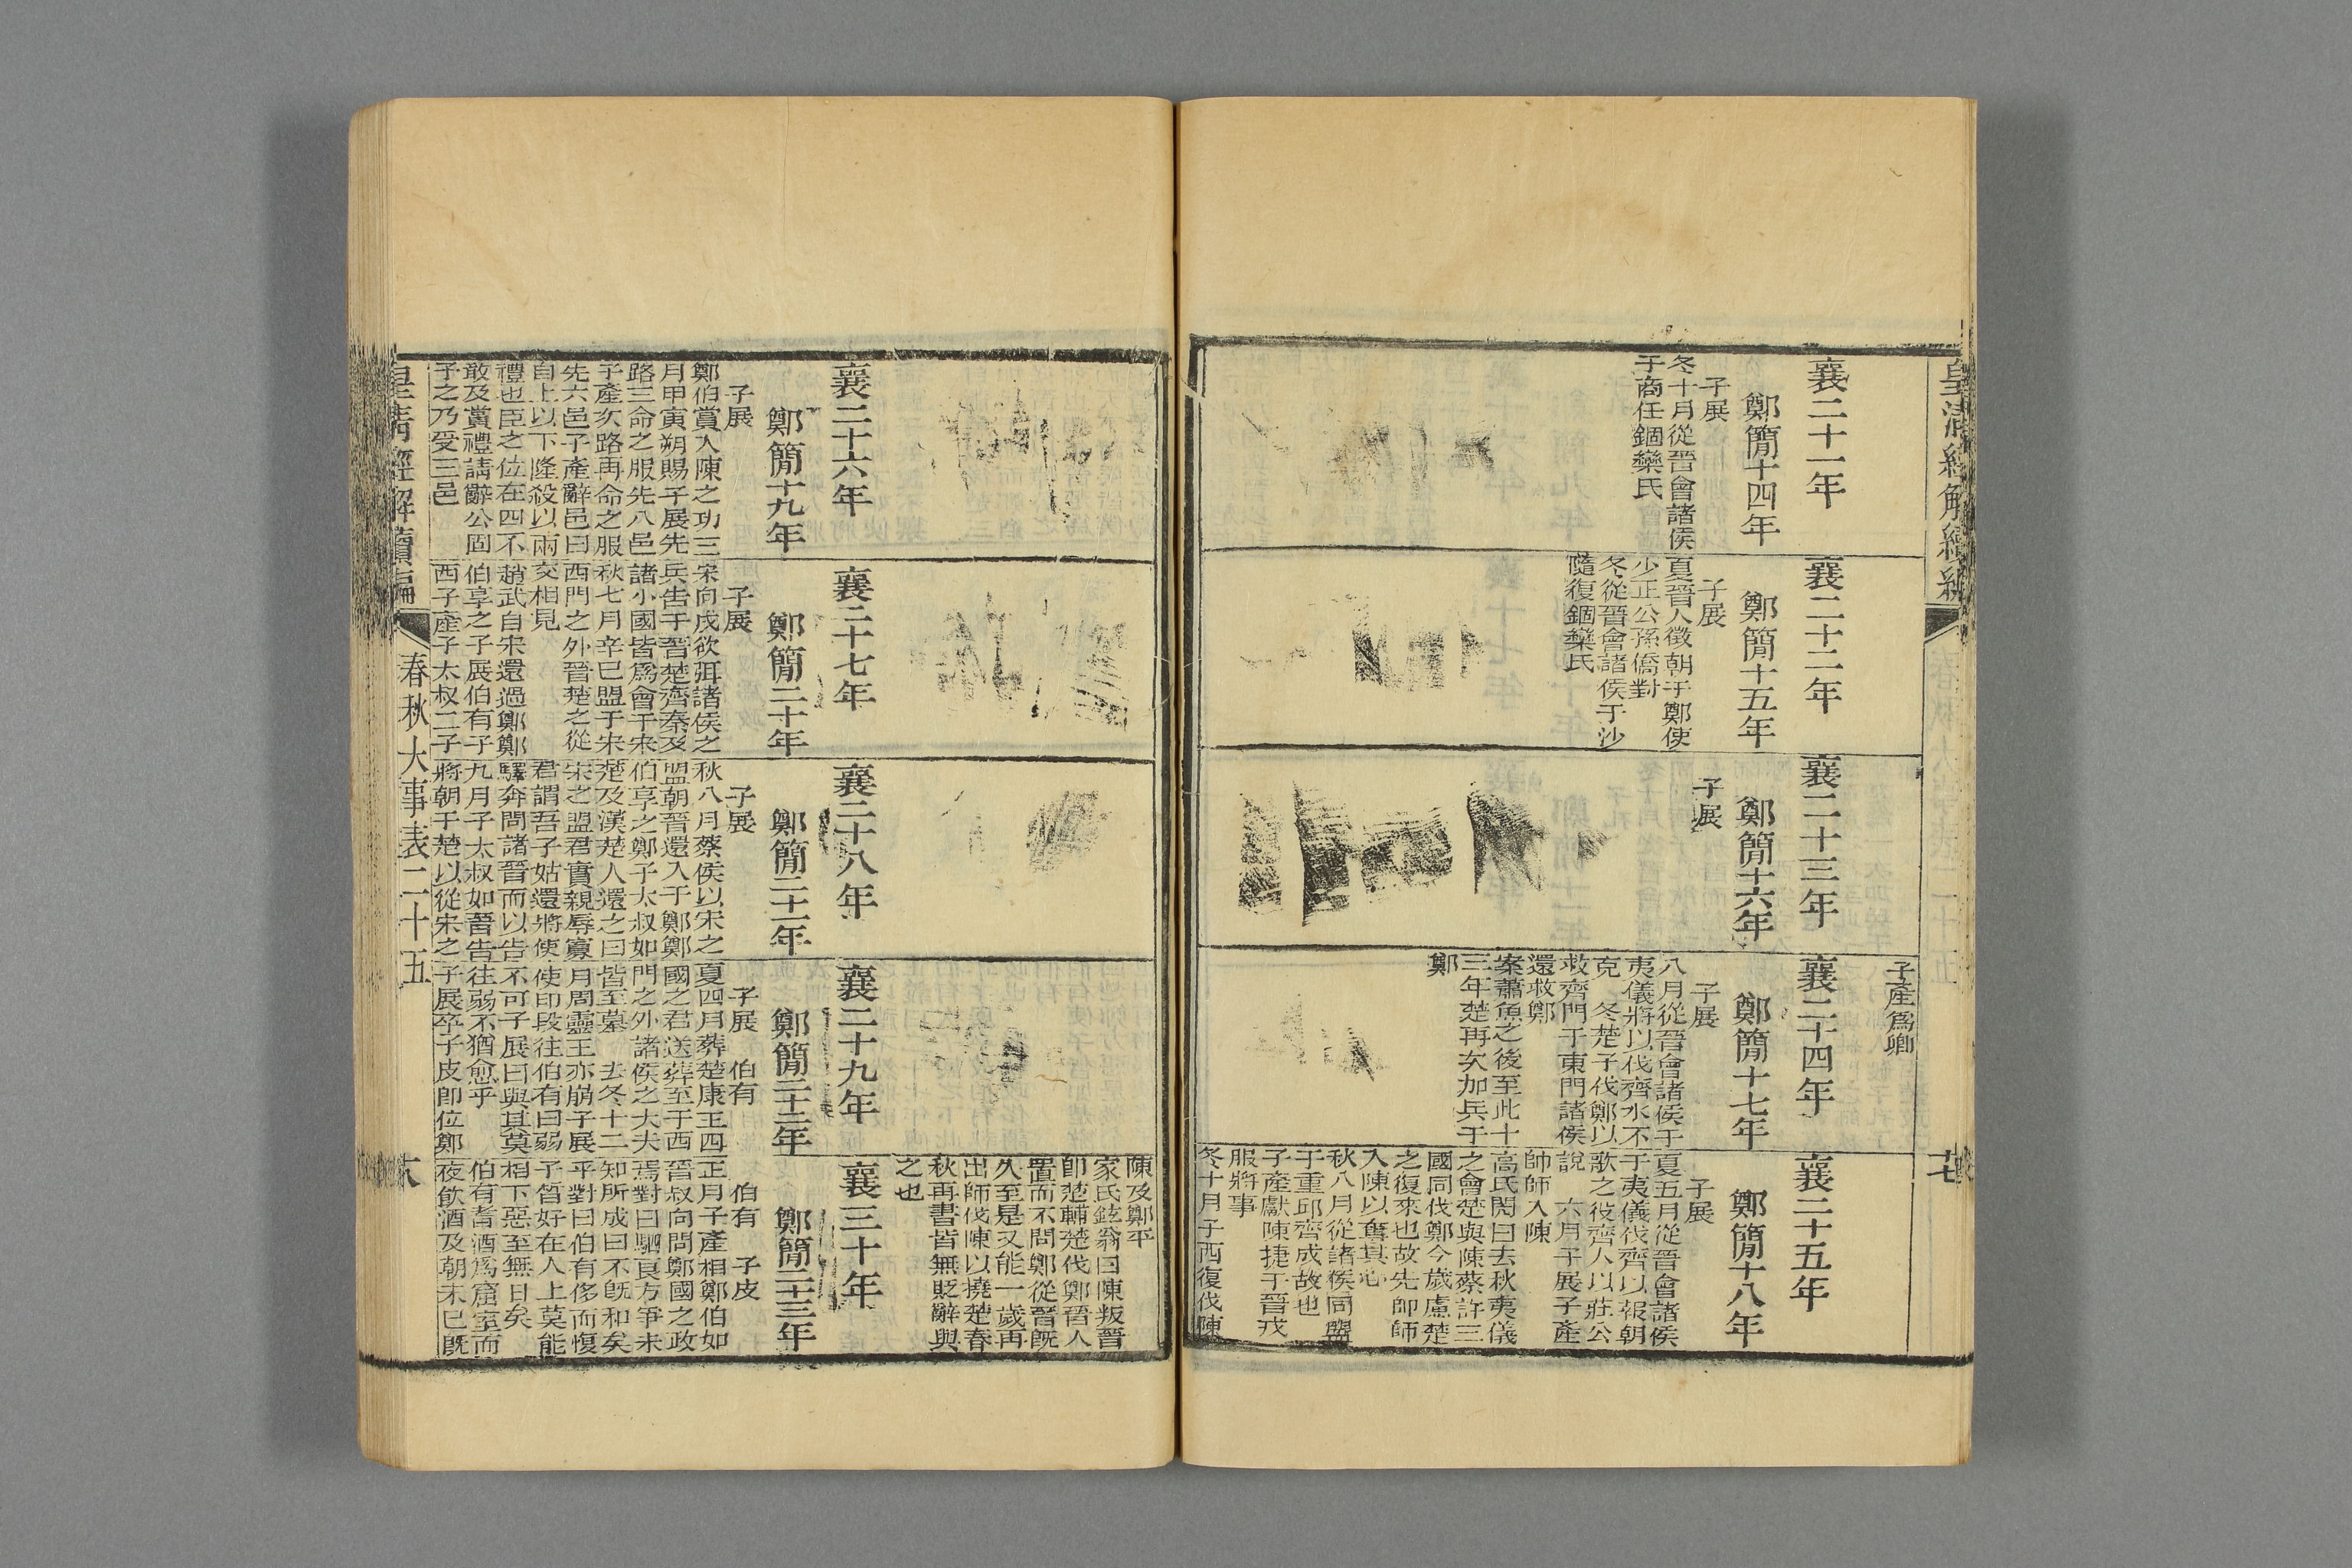 皇清經解續編
子產爲卿
襄二十一年
鄭簡十四年
子展
冬十月從晉會諸侯
于商任錮欒氏
襄二十二年
鄭簡十五年
子展
夏晉人徵朝于鄭使
少正公孫僑對
冬從晉會諸侯于沙
隨復錮欒氏
襄二十三年
鄭簡十六年
子展
襄二十四年
鄭簡十七年
子展
八月從晉會諸侯于
夷儀將以伐齊水不
克 冬楚子伐鄭以
救齊門于東門諸侯
還救鄭
案蕭魚之後至此十
三年楚再次加兵于
鄭
襄二十五年
鄭簡十八年
子展
夏五月從晉會諸侯
于夷儀伐齊以報朝
歌之役齊人以莊公
說 六月子展子產
帥師入陳
高氏閌曰去秋夷儀
之會楚與陳蔡許三
國同伐鄭今歲慮楚
之復來也故先帥師
入陳以奪其心
秋八月從諸侯同盟
于重邱齊成故也
子產獻陳捷于晉戎
服將事
冬十月子西復伐陳
陳及鄭平
家氏鉉翁曰陳叛晉
卽楚輔楚伐鄭晉人
置而不問鄭從晉旣
久至是又能一歲再
出師伐陳以撓楚春
秋再書皆無貶辭與
之也
襄二十六年
鄭簡十九年
子展
鄭伯賞入陳之功三
月甲寅朔賜子展先
路三命之服先八邑
子產次路再命之服
先六邑子產辭邑曰
自上以下隆殺以兩
禮也臣之位在四不
敢及賞禮請辭公固
予之乃受三邑
襄二十七年
鄭簡二十年
子展
宋向戌欲弭諸侯之
兵告于晉楚齊秦及
諸小國皆爲會于宋
秋七月辛巳盟于宋
西門之外晉楚之從
交相見
趙武自宋還過鄭鄭
伯享之子展伯有子
西子產子太叔二子
襄二十八年
鄭簡二十一年
子展
秋八月蔡侯以宋之
盟朝晉還入于鄭鄭
伯享之鄭子太叔如
楚及漢楚人還之曰
宋之盟君實親辱寡
君謂吾子姑還將使
驛奔問諸晉而以告
九月子太叔如晉告
將朝于楚以從宋之
襄二十九年
鄭簡二十二年
子展 伯有
夏四月葬楚康王四
國之君送葬至于西
門之外諸侯之大夫
皆至墓 去冬十二
月周靈王亦崩子展
使印段往伯有曰弱
不可子展曰與其莫
往弱不猶愈乎
子展卒子皮卽位鄭
襄三十年
鄭簡二十三年
伯有 子皮
正月子產相鄭伯如
晉叔向問鄭國之政
焉對曰駟良方爭未
知所成曰不旣和矣
乎對曰伯有侈而愎
子皙好在人上莫能
相下惡至無日矣
伯有耆酒爲窟室而
夜飲酒及朝未已旣
皇清經解續編
春秋大事表二十五